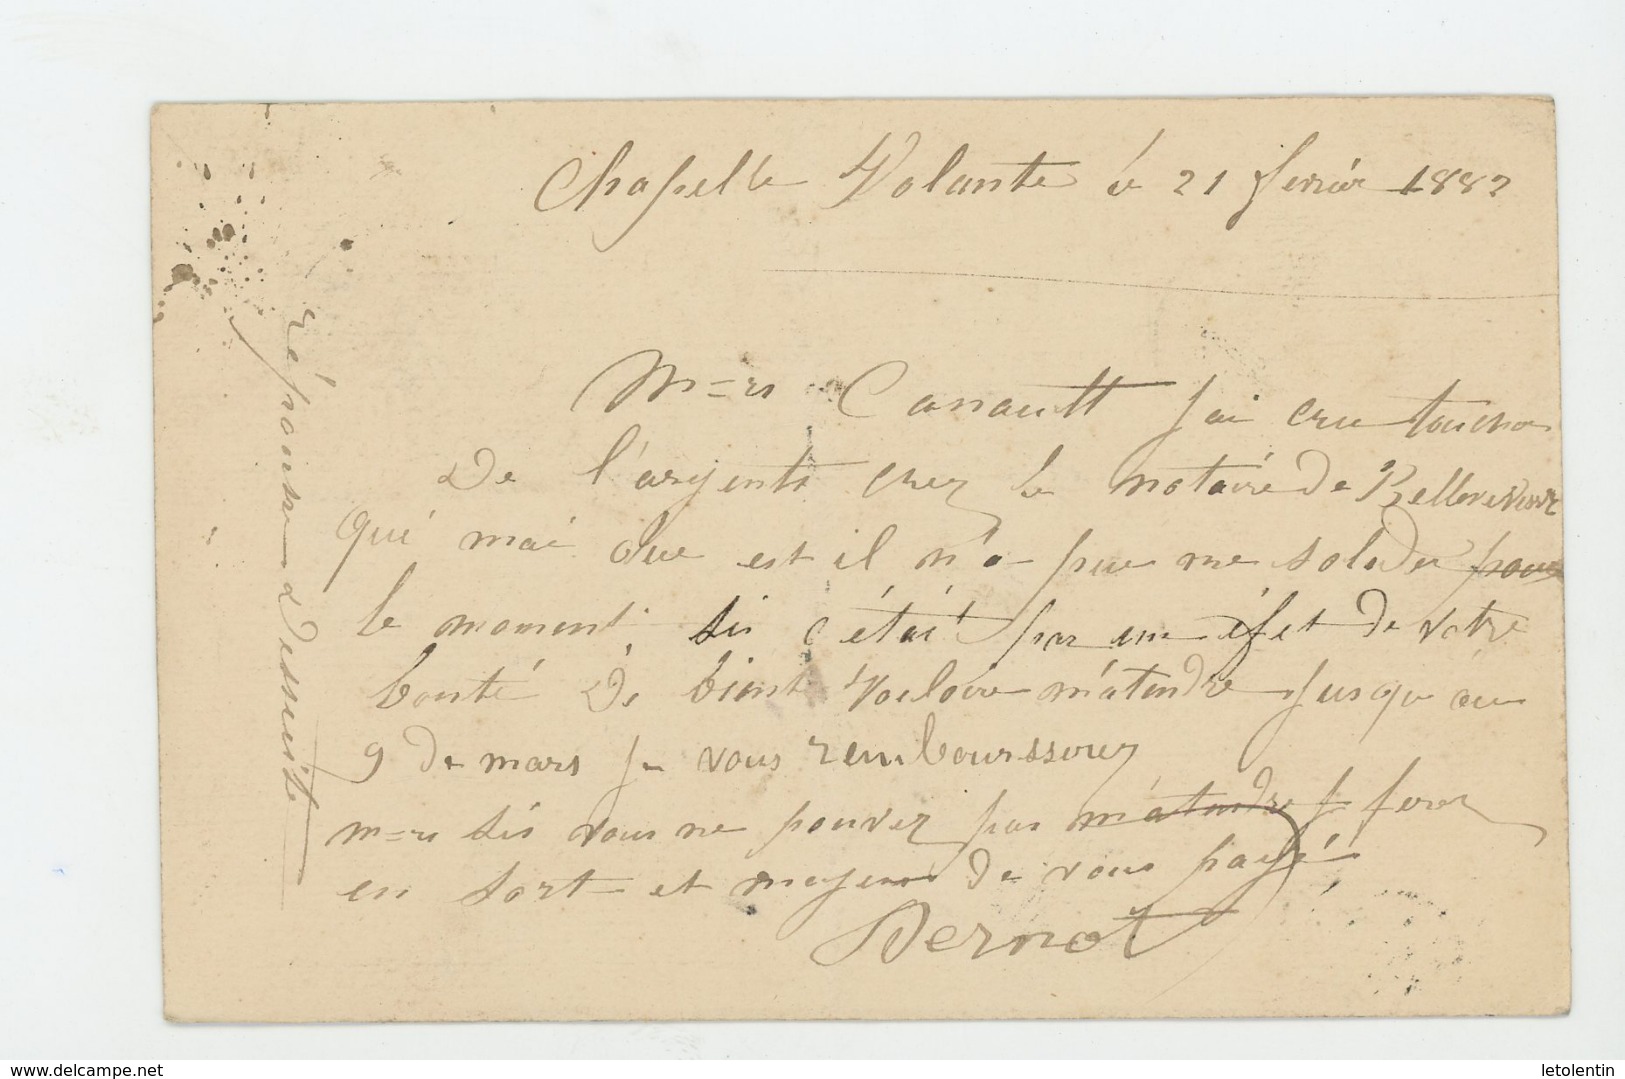 Chapelle Volante le 21 fevrier 1882
M=rs Canault J'ai cru toucher
De l'argents chez le notaire de Bellevesvre
qui mai due est il n'a pue me solder pour
le moment, sis c'étai par un éfet de votre
bonté De bient Vouloire m'atendre jusqu au
9 de mars je vous rembourssere
m=rs sis vous ne pouvez pas m'atendre Je ferez
en sort et moyens de vous payé
Dernot
réponse de ssuite
delcampe.net
letolentin